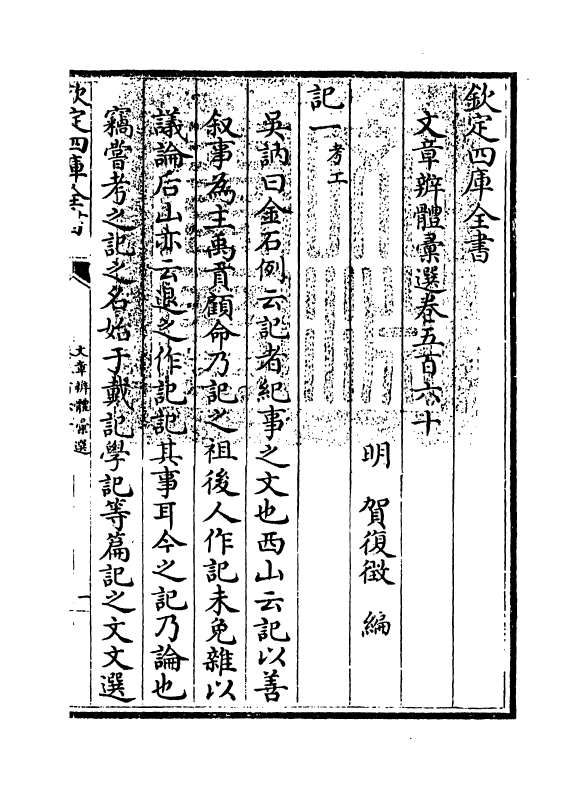 欽定四庫全書
文章辨體彙選卷五百六十
明 賀復徵 編
記一考工
吳訥曰金石例云記者紀事之文也西山云記以善
叙事為主禹貢顧命乃記之祖後人作記未免雜以
議論后山亦云退之作記記其事耳今之記乃論也
竊嘗考之記之名始于戴記學記等篇記之文文選
欽定四庫全書
文章辨體彙選
一